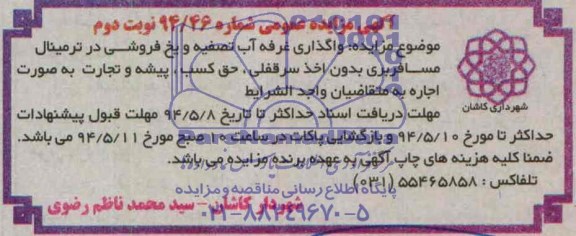 آگهی مزایده عمومی شماره ۹۴/۴۶ نوبت دوم
موضوع مزایده: واگذاری غرفه آب تصفیه و یخ فروشی در ترمینال
مسافربری بدون اخذ سرقفلی، حق کسب، پیشه و تجارت به صورت
اجاره به متقاضیان واجد الشرایط
شهرداری کاشان
مهلت دریافت اسناد حداکثر تا تاریخ ۹۴/۵/۸ مهلت قبول پیشنهادات
حداکثر تا مورخ ۹۴/۵/۱۰ و بازگشایی پاکات در ساعت ۱۰ صبح مورخ ۹۴/۵/۱۱ می باشد.
ضمنا کلیه هزینه های چاپ آگهی به عهده برنده مزایده می باشد.
تلفاکس: ۵۵۴۶۵۸۵۸ (۰۳۱)
پایگاه اطلاع رسانی مناقصه و مزایده
شهردار کاشان - سید محمد ناظم رضوی
۰۲۱-۸۸۳۴۹۶۷۰-۵